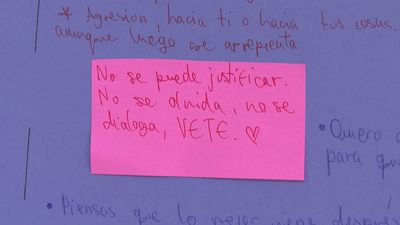 * Agresión, hacia ti o hacia tus cosas.
aunque luego se arrepienta
No se puede justificar.
No se olvida, no se
dialoga, VETE. ♡
• Quiero
para que
• Piensas que lo mejor viene después